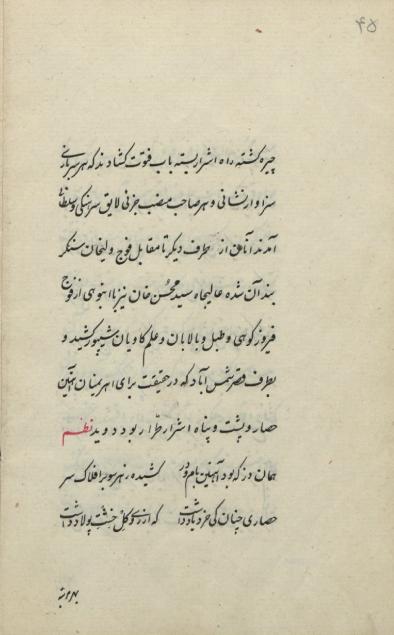 ۴۵
چیره گشته راه اشرار بسته باب فتوت گشادند که هر سربازی
سزاوار نشانی و هر صاحب منصب جزئی لایق سرهنگی و سلطانی
آمدند آنان از طرف دیگر تا مقابل فوج ولیخان سنگر
بند آن شده عالیجاه سید محسن خان نیز با انبوهی از فوج
فیروزکوهی و طبل و بالابان و علم کاویان شیپور کشید و
بطرف قصر شمس آباد که در حقیقت برای اهریمنان آهنین
حصار و پشت و پناه اشرار طرار بود دوید نظم
همان دز که بود آهنین بام و در کشیده ز هر سو بر افلاک سر
حصاری چنان کی خرد یاد داشت که از زی و گل خشت پولاد داشت